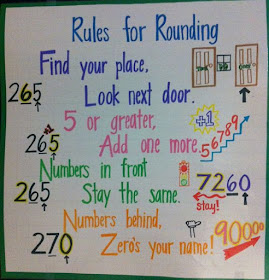 Rules for Rounding
Find your place,
265
Look next door.
5 or greater,
+1
265
Add one more.
5 6 7 8 9
Numbers in front
7260
265
Stay the same.
stay!
Numbers behind,
9000
270
Zero's your name!